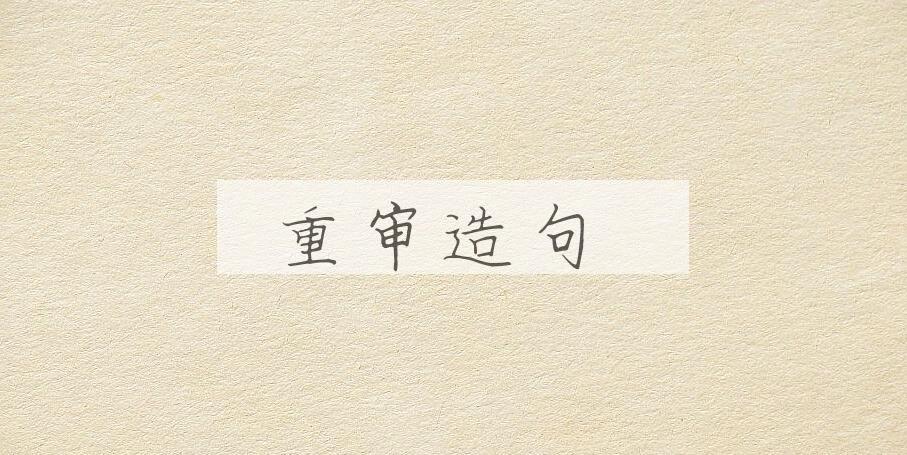 重审造句